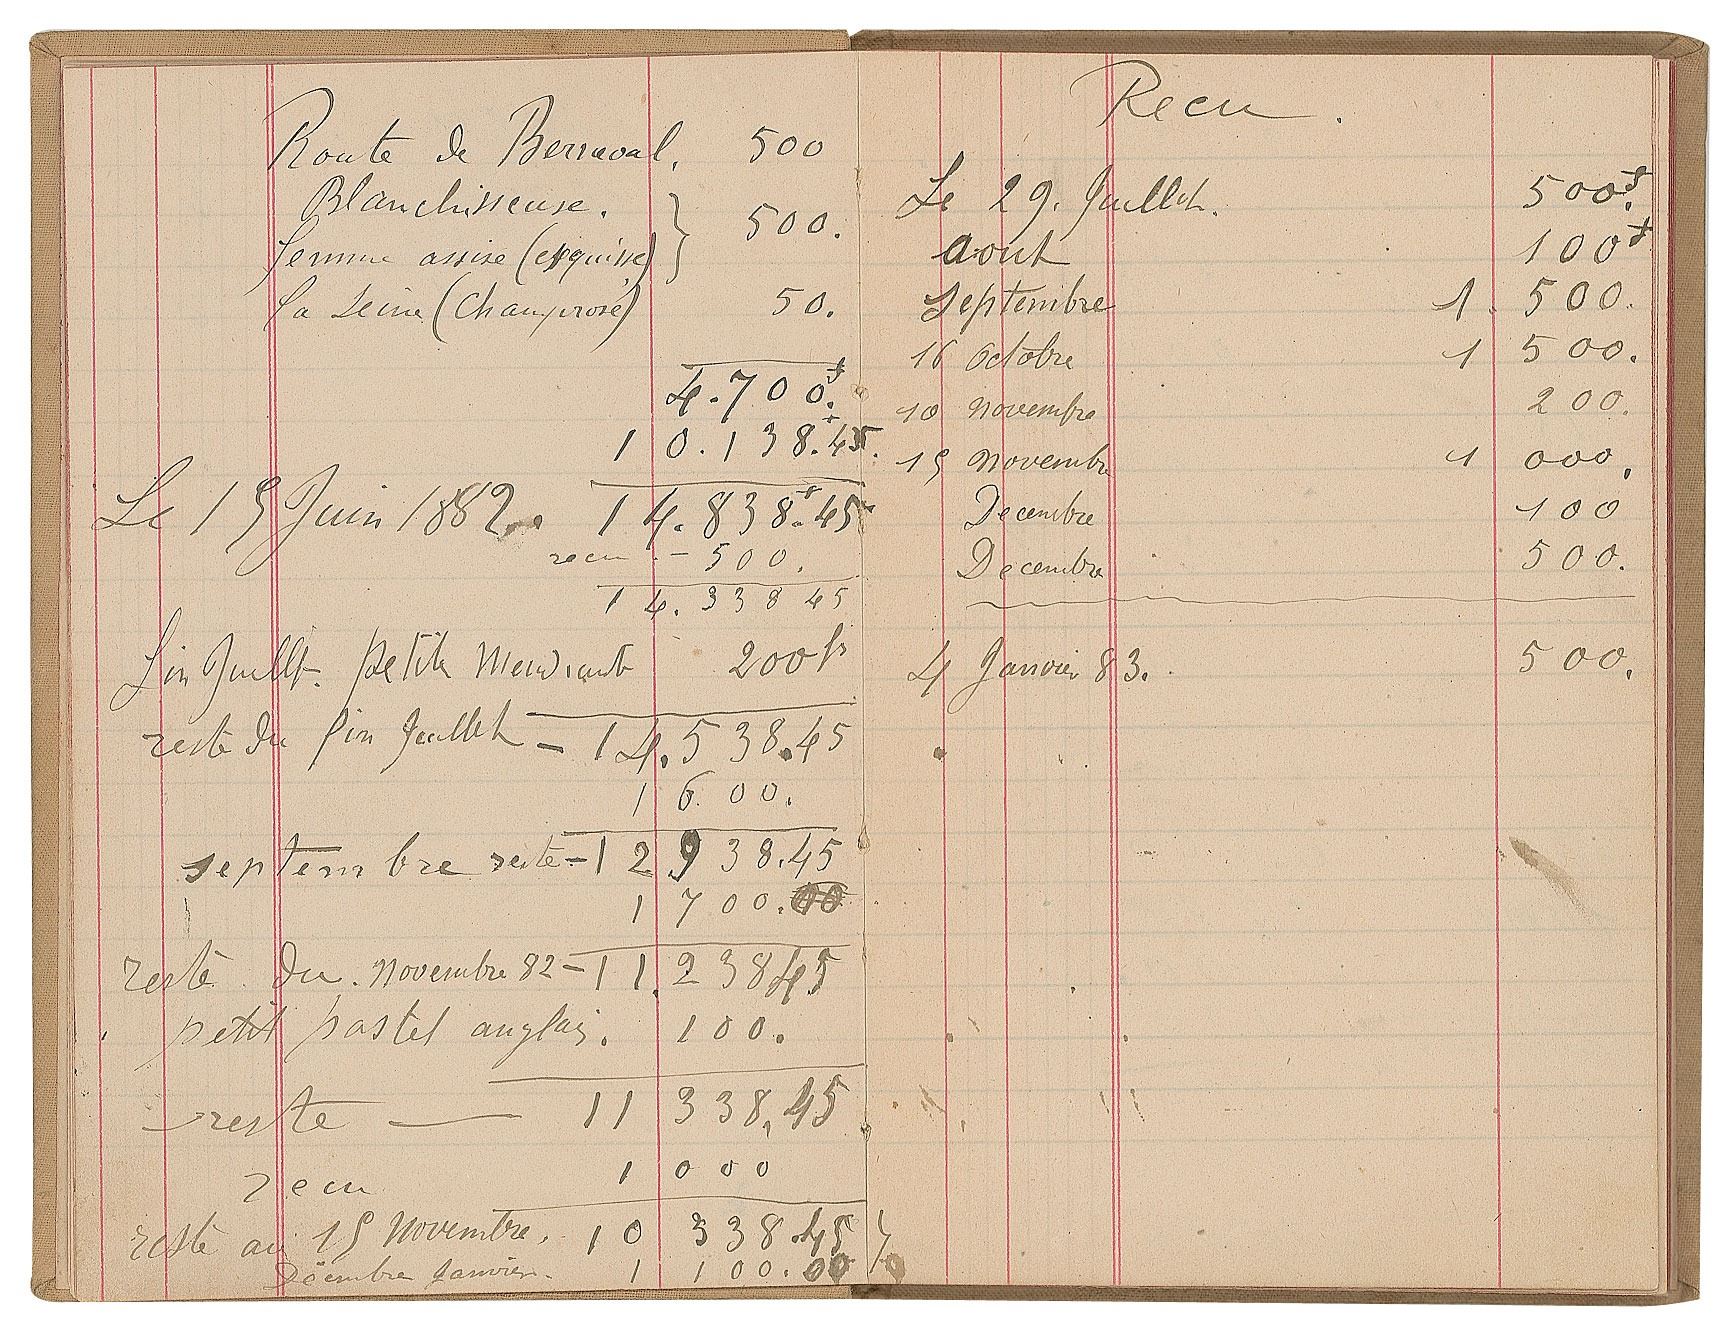 Route de Berneval. 500
Blanchisseuse.
femme assise (esquisse) } 500.
La Seine (Champrosé) 50.
4.700.f
10.138.45.
Le 15 Juin 1882. 14.838f.45
recu - 500.
14.338 45
fin Juillet. petite Mendiante 200 fr
reste du fin Juillet - 14.538.45
1 600.
septembre reste - 12 938.45
1 700.00
reste du. Novembre 82 - 11.238 45
petit pastel anglais. 100.
reste — 11 338,45
recu 1 000
reste au 15 Novembre. 10 338.45
Décembre Janvier. 1 100.00
Recu.
Le 29. Juillet. 500f.
aout 100f
Septembre 1. 500.
16 Octobre 1 500.
10 Novembre 200.
15 Novembre 1 000.
Decembre 100
Decembre 500.
4 Janvier 83. 500.